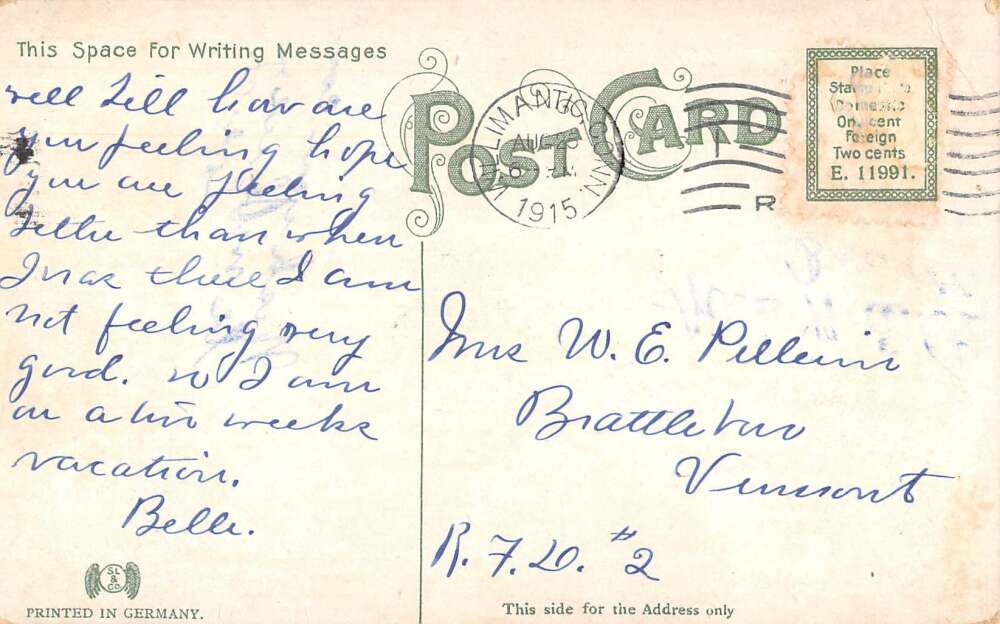 This Space For Writing Messages
well Lill how are
you feeling hope
you are feeling
better than when
I was there I am
not feeling very
good. so I am
on a two weeks
vacation.
Belle.
S L & CO
PRINTED IN GERMANY.
POST CARD
WILLIMANTIC CONN.
AUG 23
6
1915
R
Place
Stamp
Domestic
One cent
Foreign
Two cents
E. 11991.
Mrs W. E.
Brattleboro
Vermont
R. F. D. #2
This side for the Address only